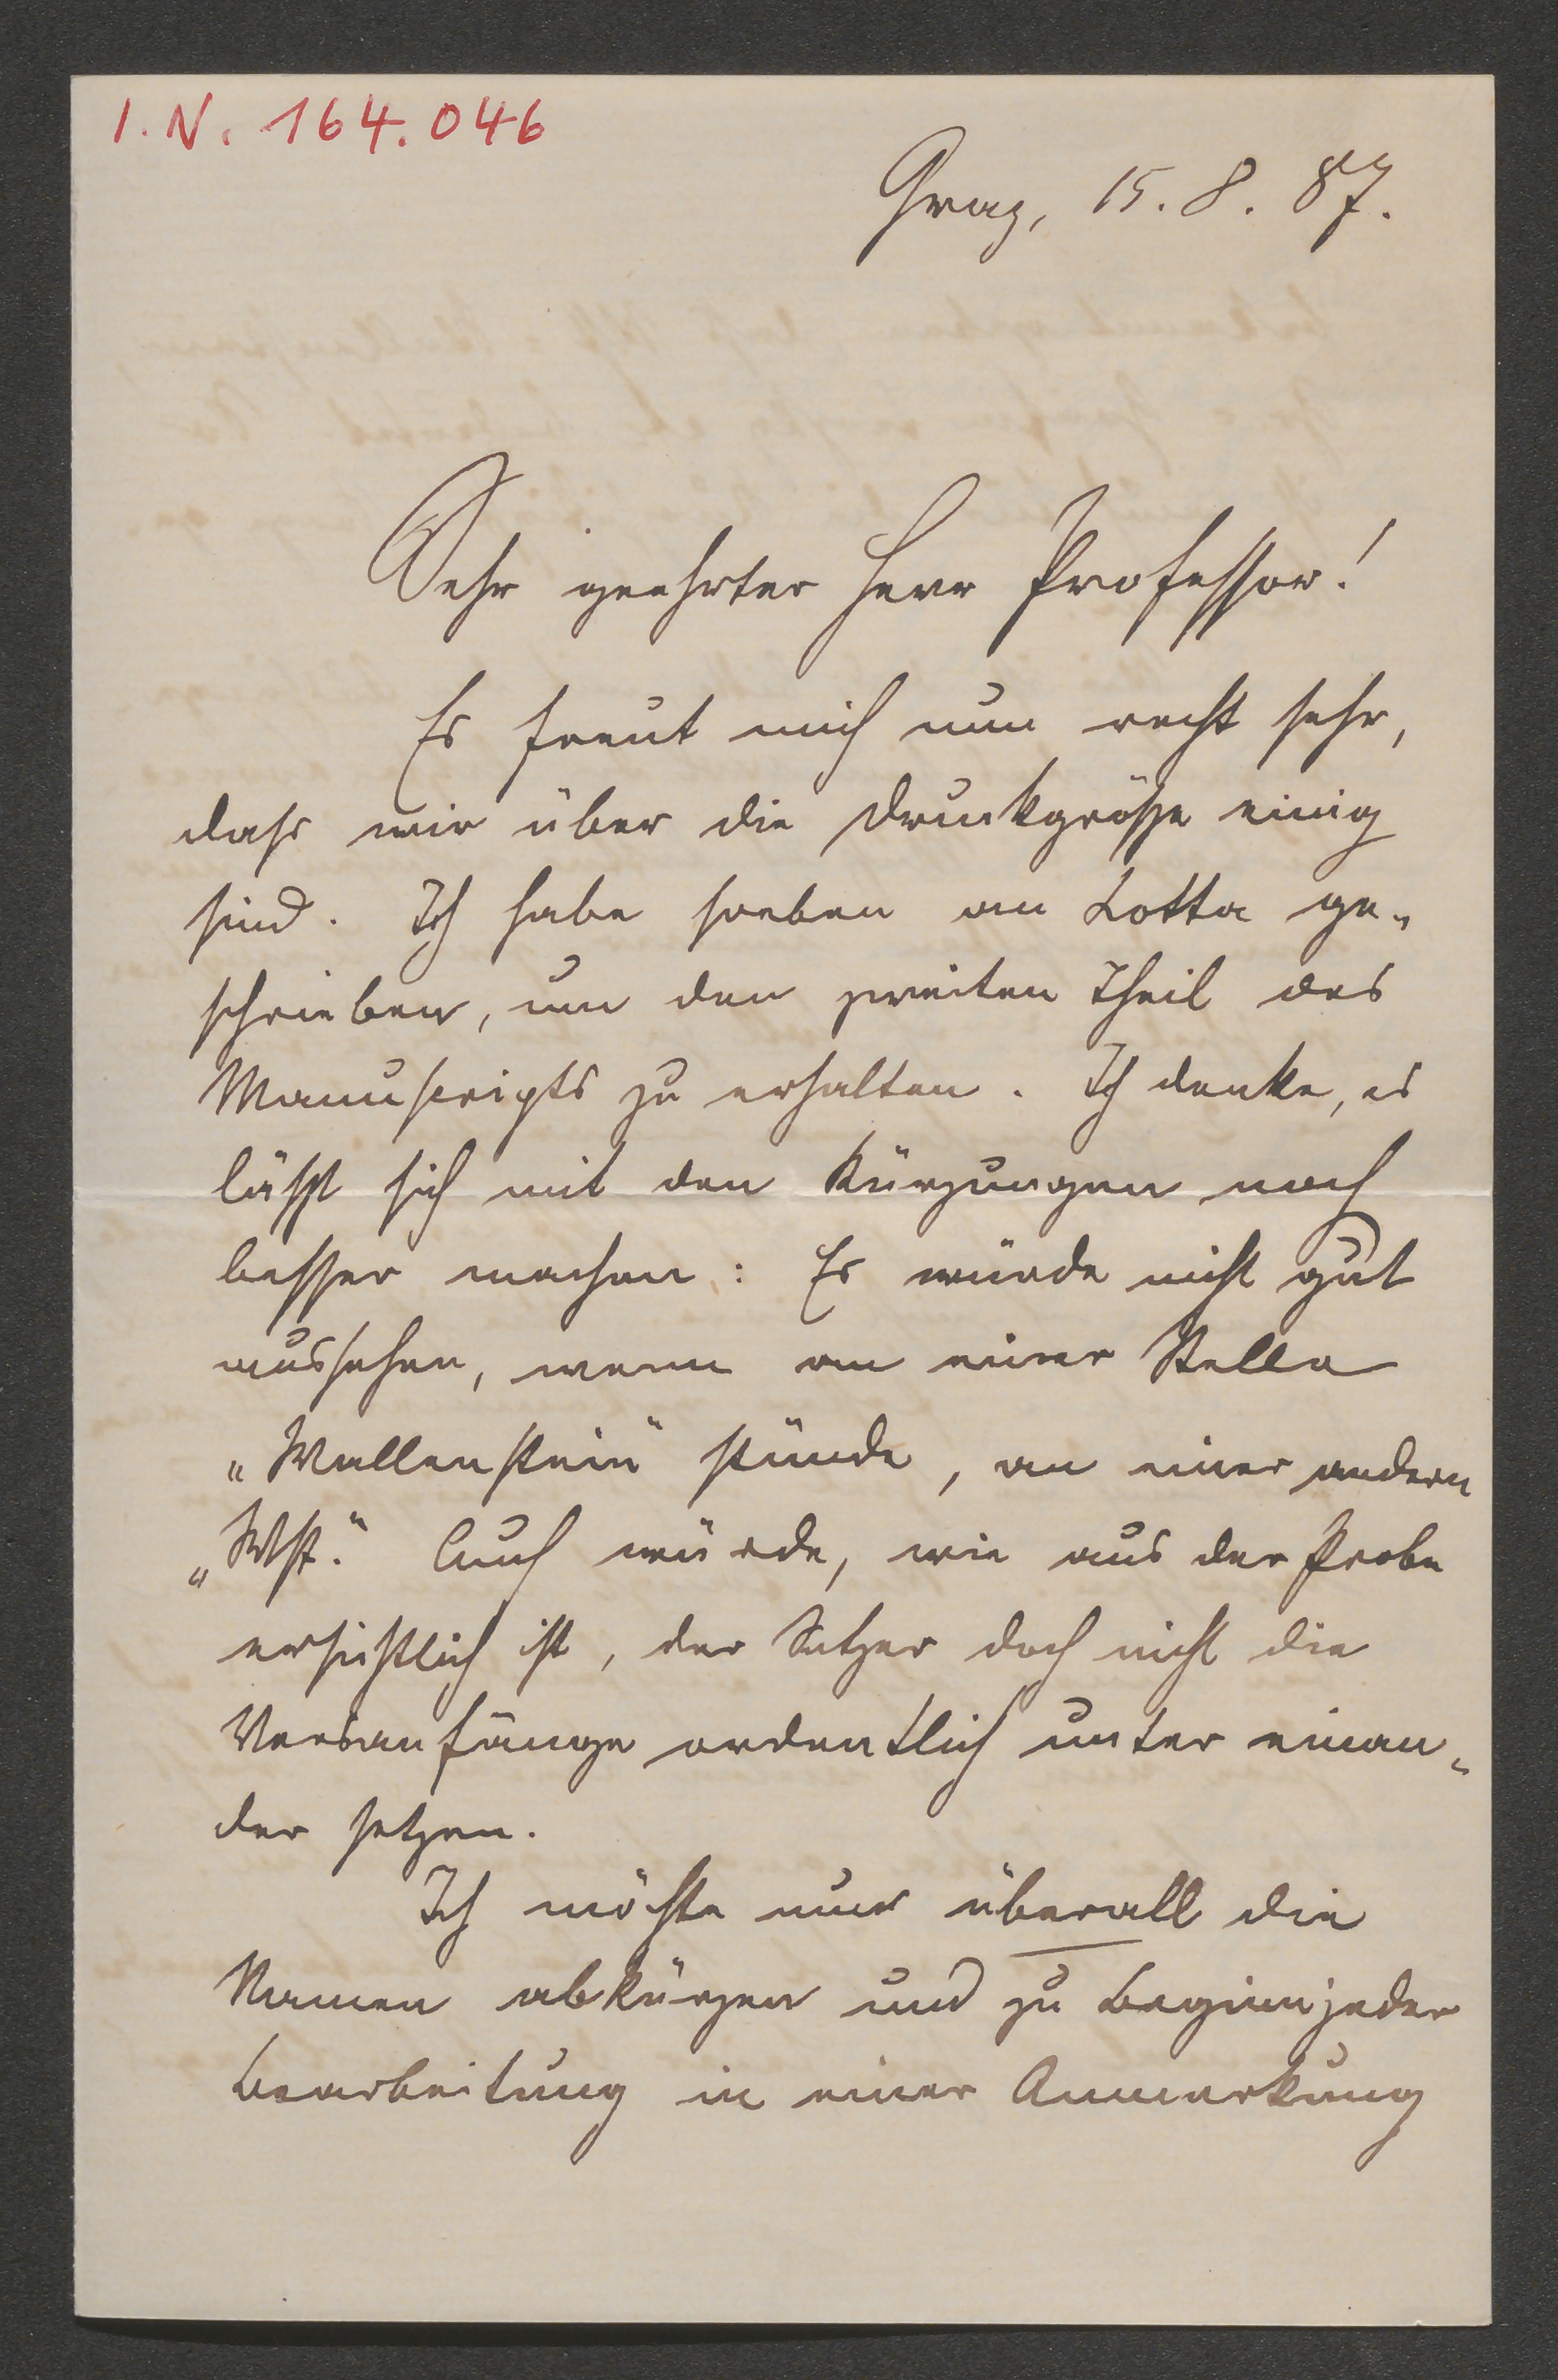 I.N. 164.046
Graz, 15. 8. 87.
Sehr geehrter Herr Professor!
Es freut mich nun recht sehr,
dass wir über die Druckgröße einig
sind. Ich habe soeben an Cotta ge-
schrieben, um den zweiten Theil des
Manuscripts zu erhalten. Ich denke, es
läßt sich mit den Kürzungen noch
besser machen: Es würde nicht gut
aussehen, wenn an einer Stelle
„Wallenstein“ stünde, an einer andern
„Wst.“ Auch würde, wie aus der Probe
ersichtlich ist, der Setzer doch nicht die
Versanfänge ordentlich unter einan-
der setzen.
Ich möchte nun überall die
Namen abkürzen und zu Beginn jeder
Bearbeitung in einer Anmerkung